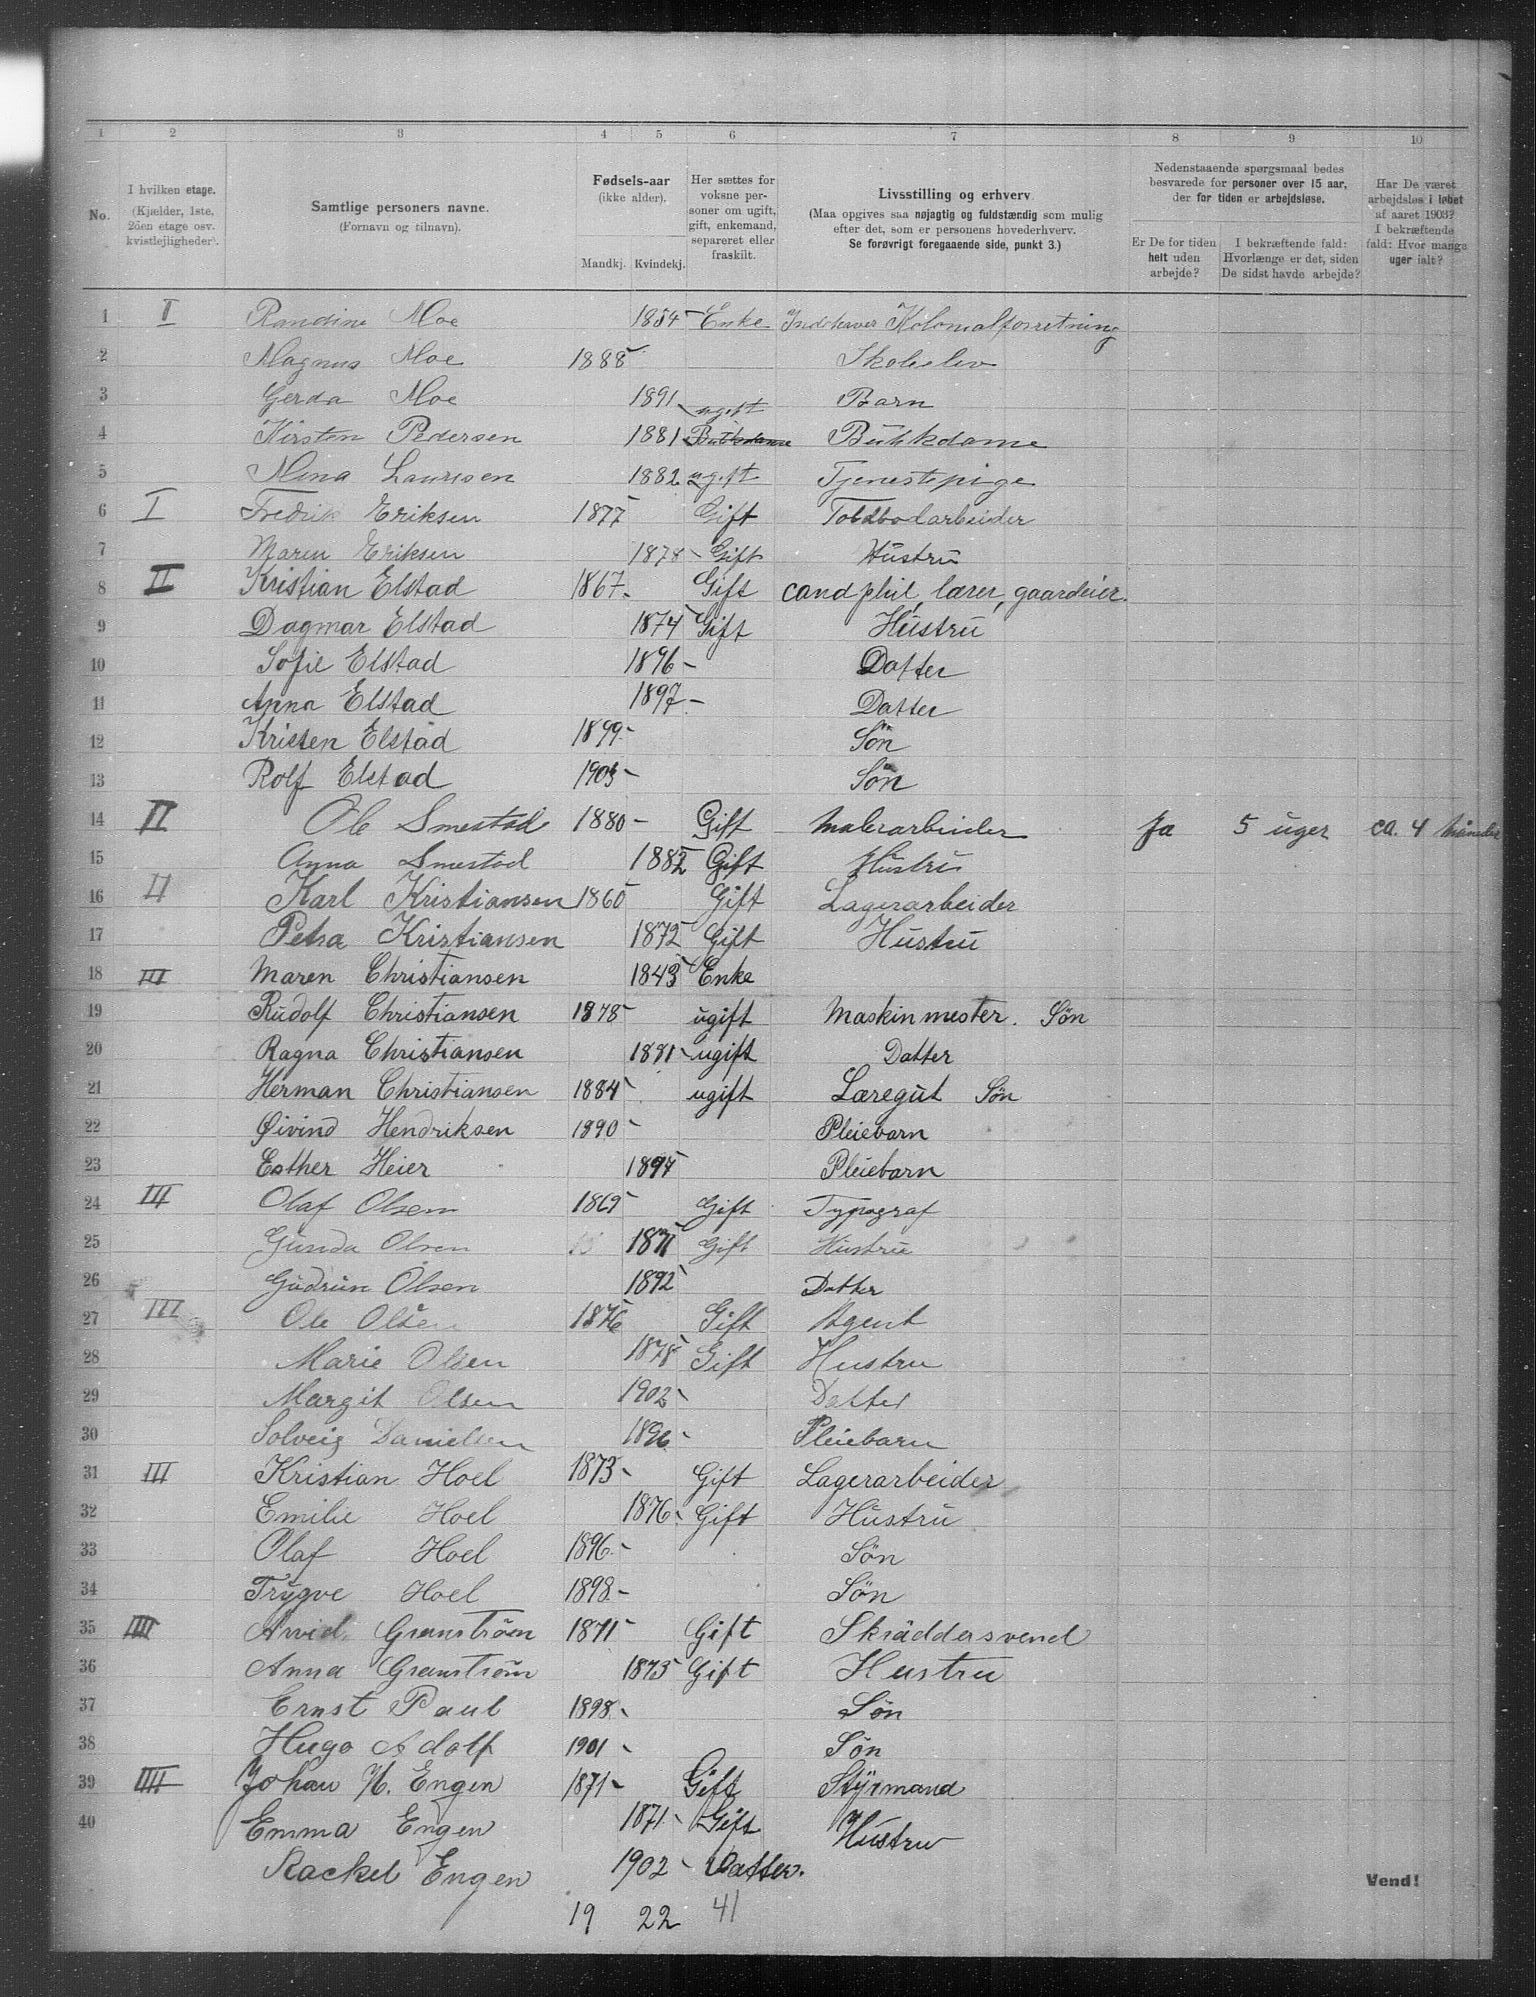 1 2 3 4 5 6 7 8 9 10
No. I hvilken etage. (Kjælder, 1ste, 2den etage osv. kvistlejligheder). Samtlige personers navne. (Fornavn og tilnavn). Fødsels-aar (ikke alder). Mandkj. Kvindekj. Her sættes for voksne personer om ugift, gift, enkemand, separeret eller fraskilt. Livsstilling og erhverv. (Maa opgives saa nøjagtig og fuldstændig som mulig efter det, som er personens hovederhverv. Se forøvrigt foregaaende side, punkt 3.) Nedenstaaende spørgsmaal bedes besvarede for personer over 15 aar, der for tiden er arbejdsløse. Er De for tiden helt uden arbejde? I bekræftende fald: Hvorlænge er det, siden De sidst havde arbejde? Har De været arbejdsløs i løbet af aaret 1903? I bekræftende fald: Hvor mange uger ialt?
1 II Randine Moe 1854 Enke Indehaver Kolonialforretning
2 Magnus Moe 1888 Skoleelev
3 Gerda Moe 1891 Barn
4 Kirsten Pedersen 1881 ugift Butikdame Butikdame
5 Mina Lauresen 1882 ugift Tjenestepige
6 I Fredrik Eriksen 1877 Gift Toldbodarbeider
7 Maren Eriksen 1878 Gift Hustru
8 II Kristian Elstad 1867 Gift cand phil, lærer, gaardeier.
9 Dagmar Elstad 1874 Gift Hustru
10 Sofie Elstad 1896 Datter
11 Anna Elstad 1897 Datter
12 Kristen Elstad 1899 Søn
13 Rolf Elstad 1903 Søn
14 II Ole Smestad 1880 Gift Malerarbeider Ja 5 uger ca. 4 måneder
15 Anna Smestad 1882 Gift Hustru
16 II Karl Kristiansen 1860 Gift Lagerarbeider
17 Petra Kristiansen 1872 Gift Hustru
18 III Maren Christiansen 1843 Enke
19 Rudolf Christiansen 1878 ugift Maskinmester. Søn
20 Ragna Christiansen 1881 ugift Datter
21 Herman Christiansen 1884 ugift Læregut Søn
22 Øivind Hendriksen 1890 Pleiebarn
23 Esther Heier 1894 Pleiebarn
24 III Olaf Olsen 1869 Gift Typograf
25 Gunda Olsen 1871 Gift Hustru
26 Gudrun Olsen 1892 Datter
27 III Ole Olsen 1876 Gift Agent
28 Marie Olsen 1878 Gift Hustru
29 Margit Olsen 1902 Datter
30 Solveig Danielsen 1896 Pleiebarn
31 III Kristian Hoel 1873 Gift Lagerarbeider
32 Emilie Hoel 1876 Gift Hustru
33 Olaf Hoel 1896 Søn
34 Trygve Hoel 1898 Søn
35 IIII Arvid Granströen 1871 Gift Skräddersvend
36 Anna Granström 1875 Gift Hustru
37 Ernst Paul 1898 Søn
38 Hugo Adolf 1901 Søn
39 IIII Johan H. Engen 1871 Gift Styrmand
40 Emma Engen 1871 Gift Hustru
Rackel Engen 1902 Datter.
Vend!
19 22 41